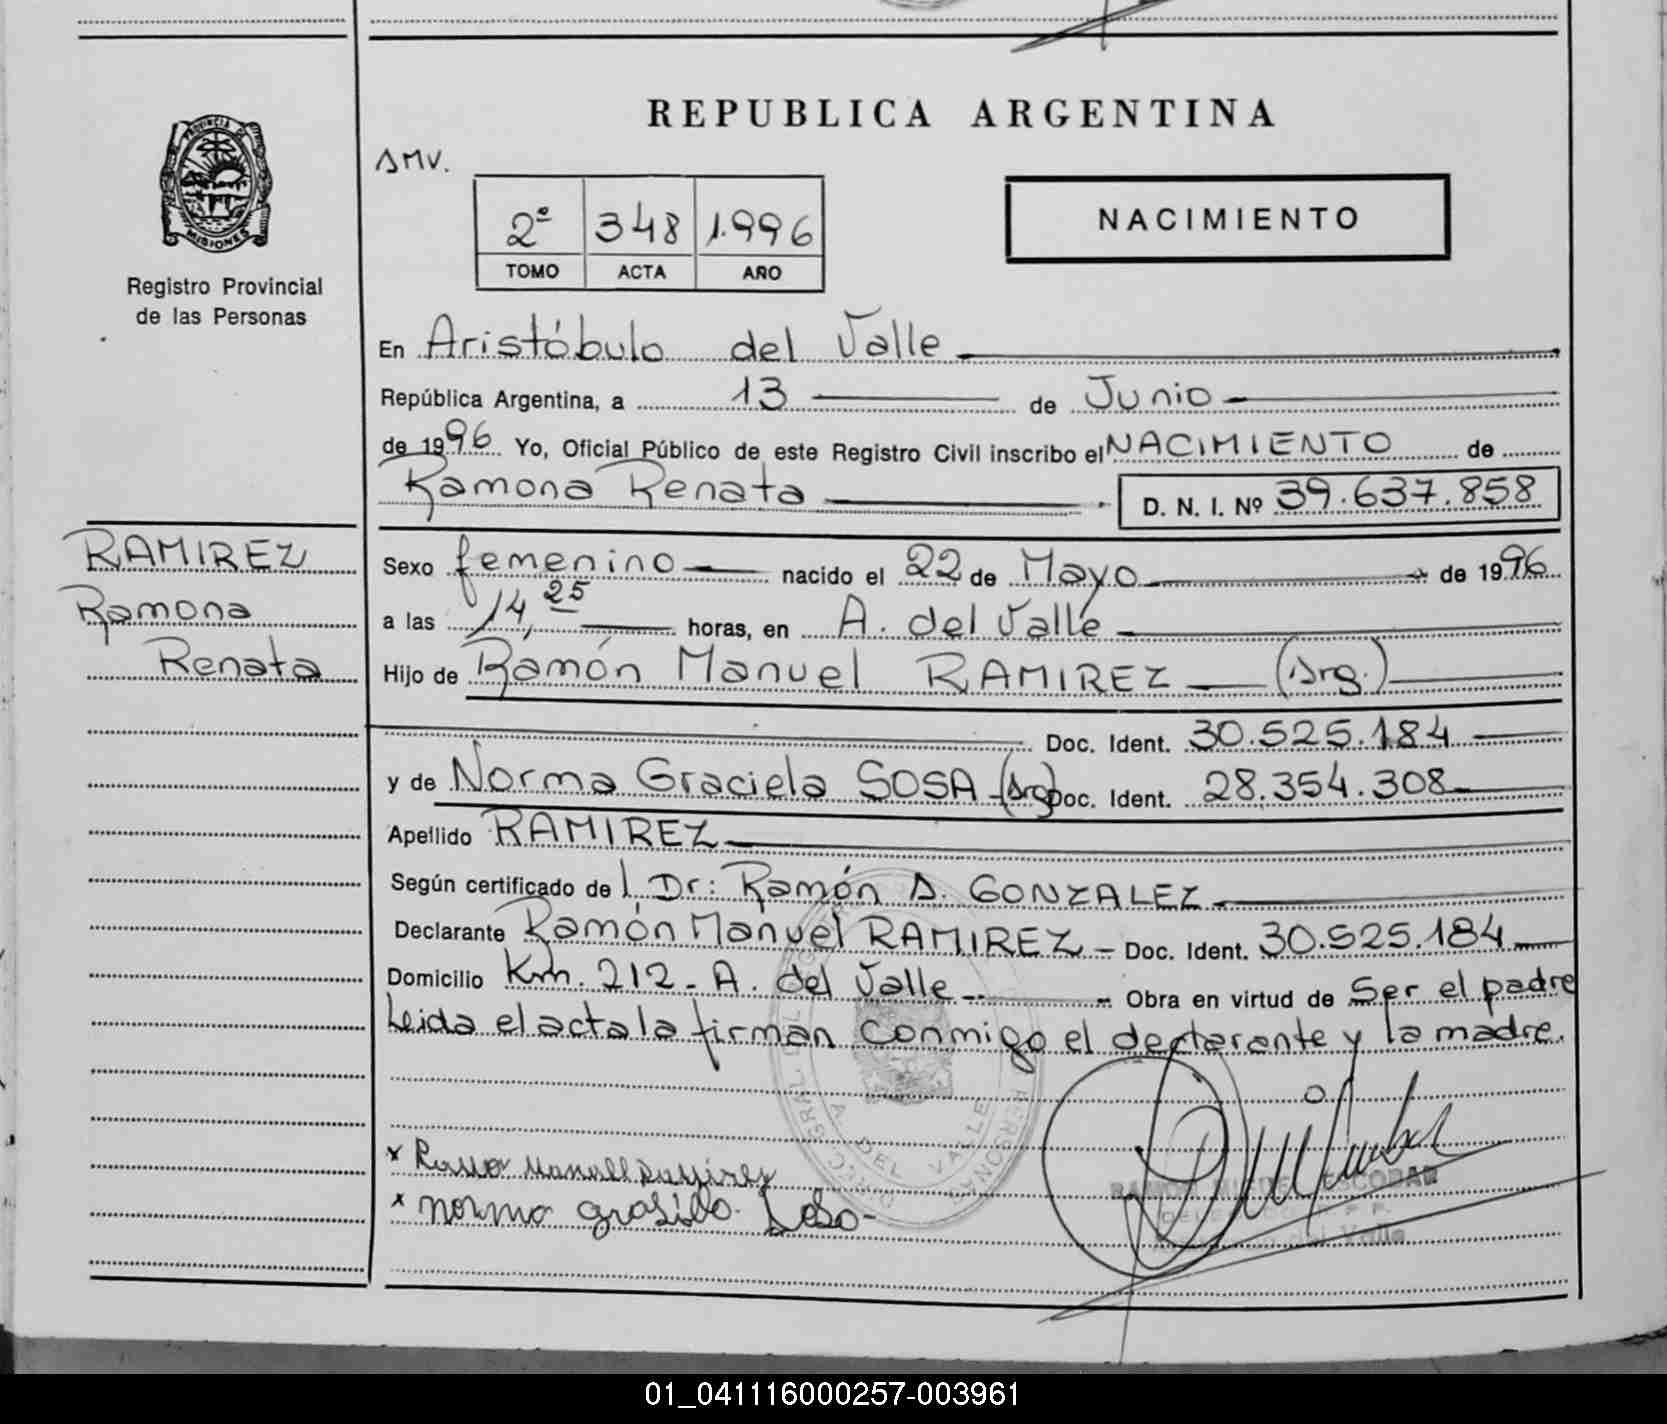 REPUBLICA ARGENTINA
SMV.
PROVINCIA DE MISIONES
Registro Provincial
de las Personas
2º 348 1.996
TOMO ACTA AÑO
NACIMIENTO
En Aristóbulo del Valle
República Argentina, a 13 de Junio
de 1996 Yo, Oficial Público de este Registro Civil inscribo el NACIMIENTO de
Ramona Renata D. N. I. Nº 39.637.858
RAMIREZ
Ramona
Renata
Sexo femenino nacido el 22 de Mayo de 1996
a las 14,25 horas, en A. del Valle
Hijo de Ramón Manuel RAMIREZ (Arg.)
Doc. Ident. 30.525.184
y de Norma Graciela SOSA (Arg) Doc. Ident. 28.354.308
Apellido RAMIREZ
Según certificado de l Dr: Ramón A. GONZALEZ
Declarante Ramón Manuel RAMIREZ - Doc. Ident. 30.525.184
Domicilio Km. 212 - A. del Valle Obra en virtud de Ser el padre
Leida el acta la firman conmigo el declarante y la madre.
A. DEL VALLE
RAMON MIGUEL ESCOBAR
DELEGADO R.P.P.
Aristóbulo del Valle
x norma grasiela Soso
01_041116000257-003961